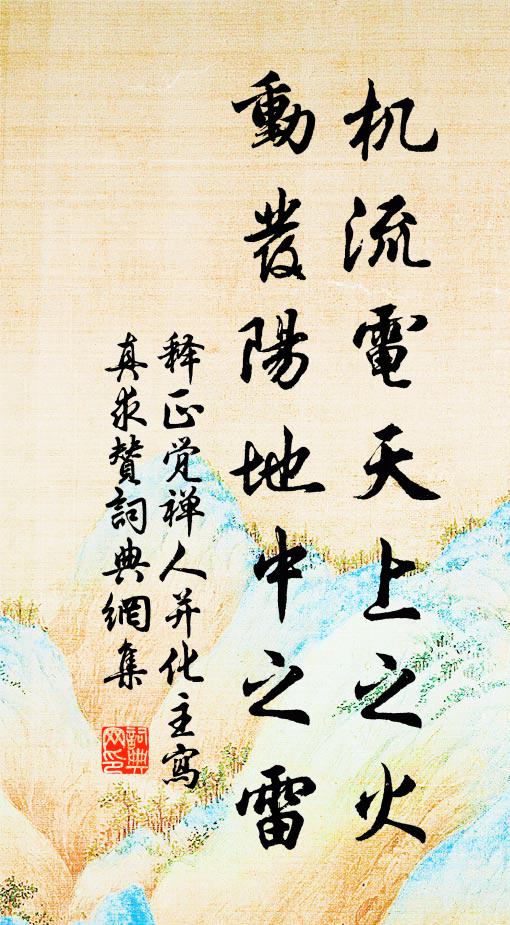 机流電天上之火
動發陽地中之雷
释正觉禅人并化主寫
真求贊詞典網集
詞典網印